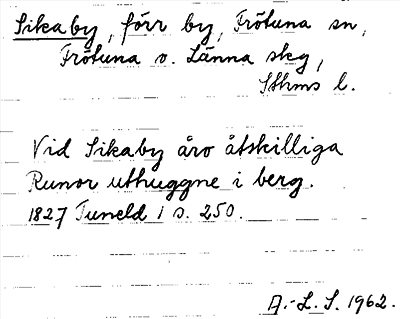 Sikaby, förr by, Frötuna sn,
Frötuna o. Länna skg,
Sthms l.
Vid Sikaby äro åtskilliga
Runor uthuggne i berg.
1827 Tuneld 1 s. 250.
A.-L. S. 1962.